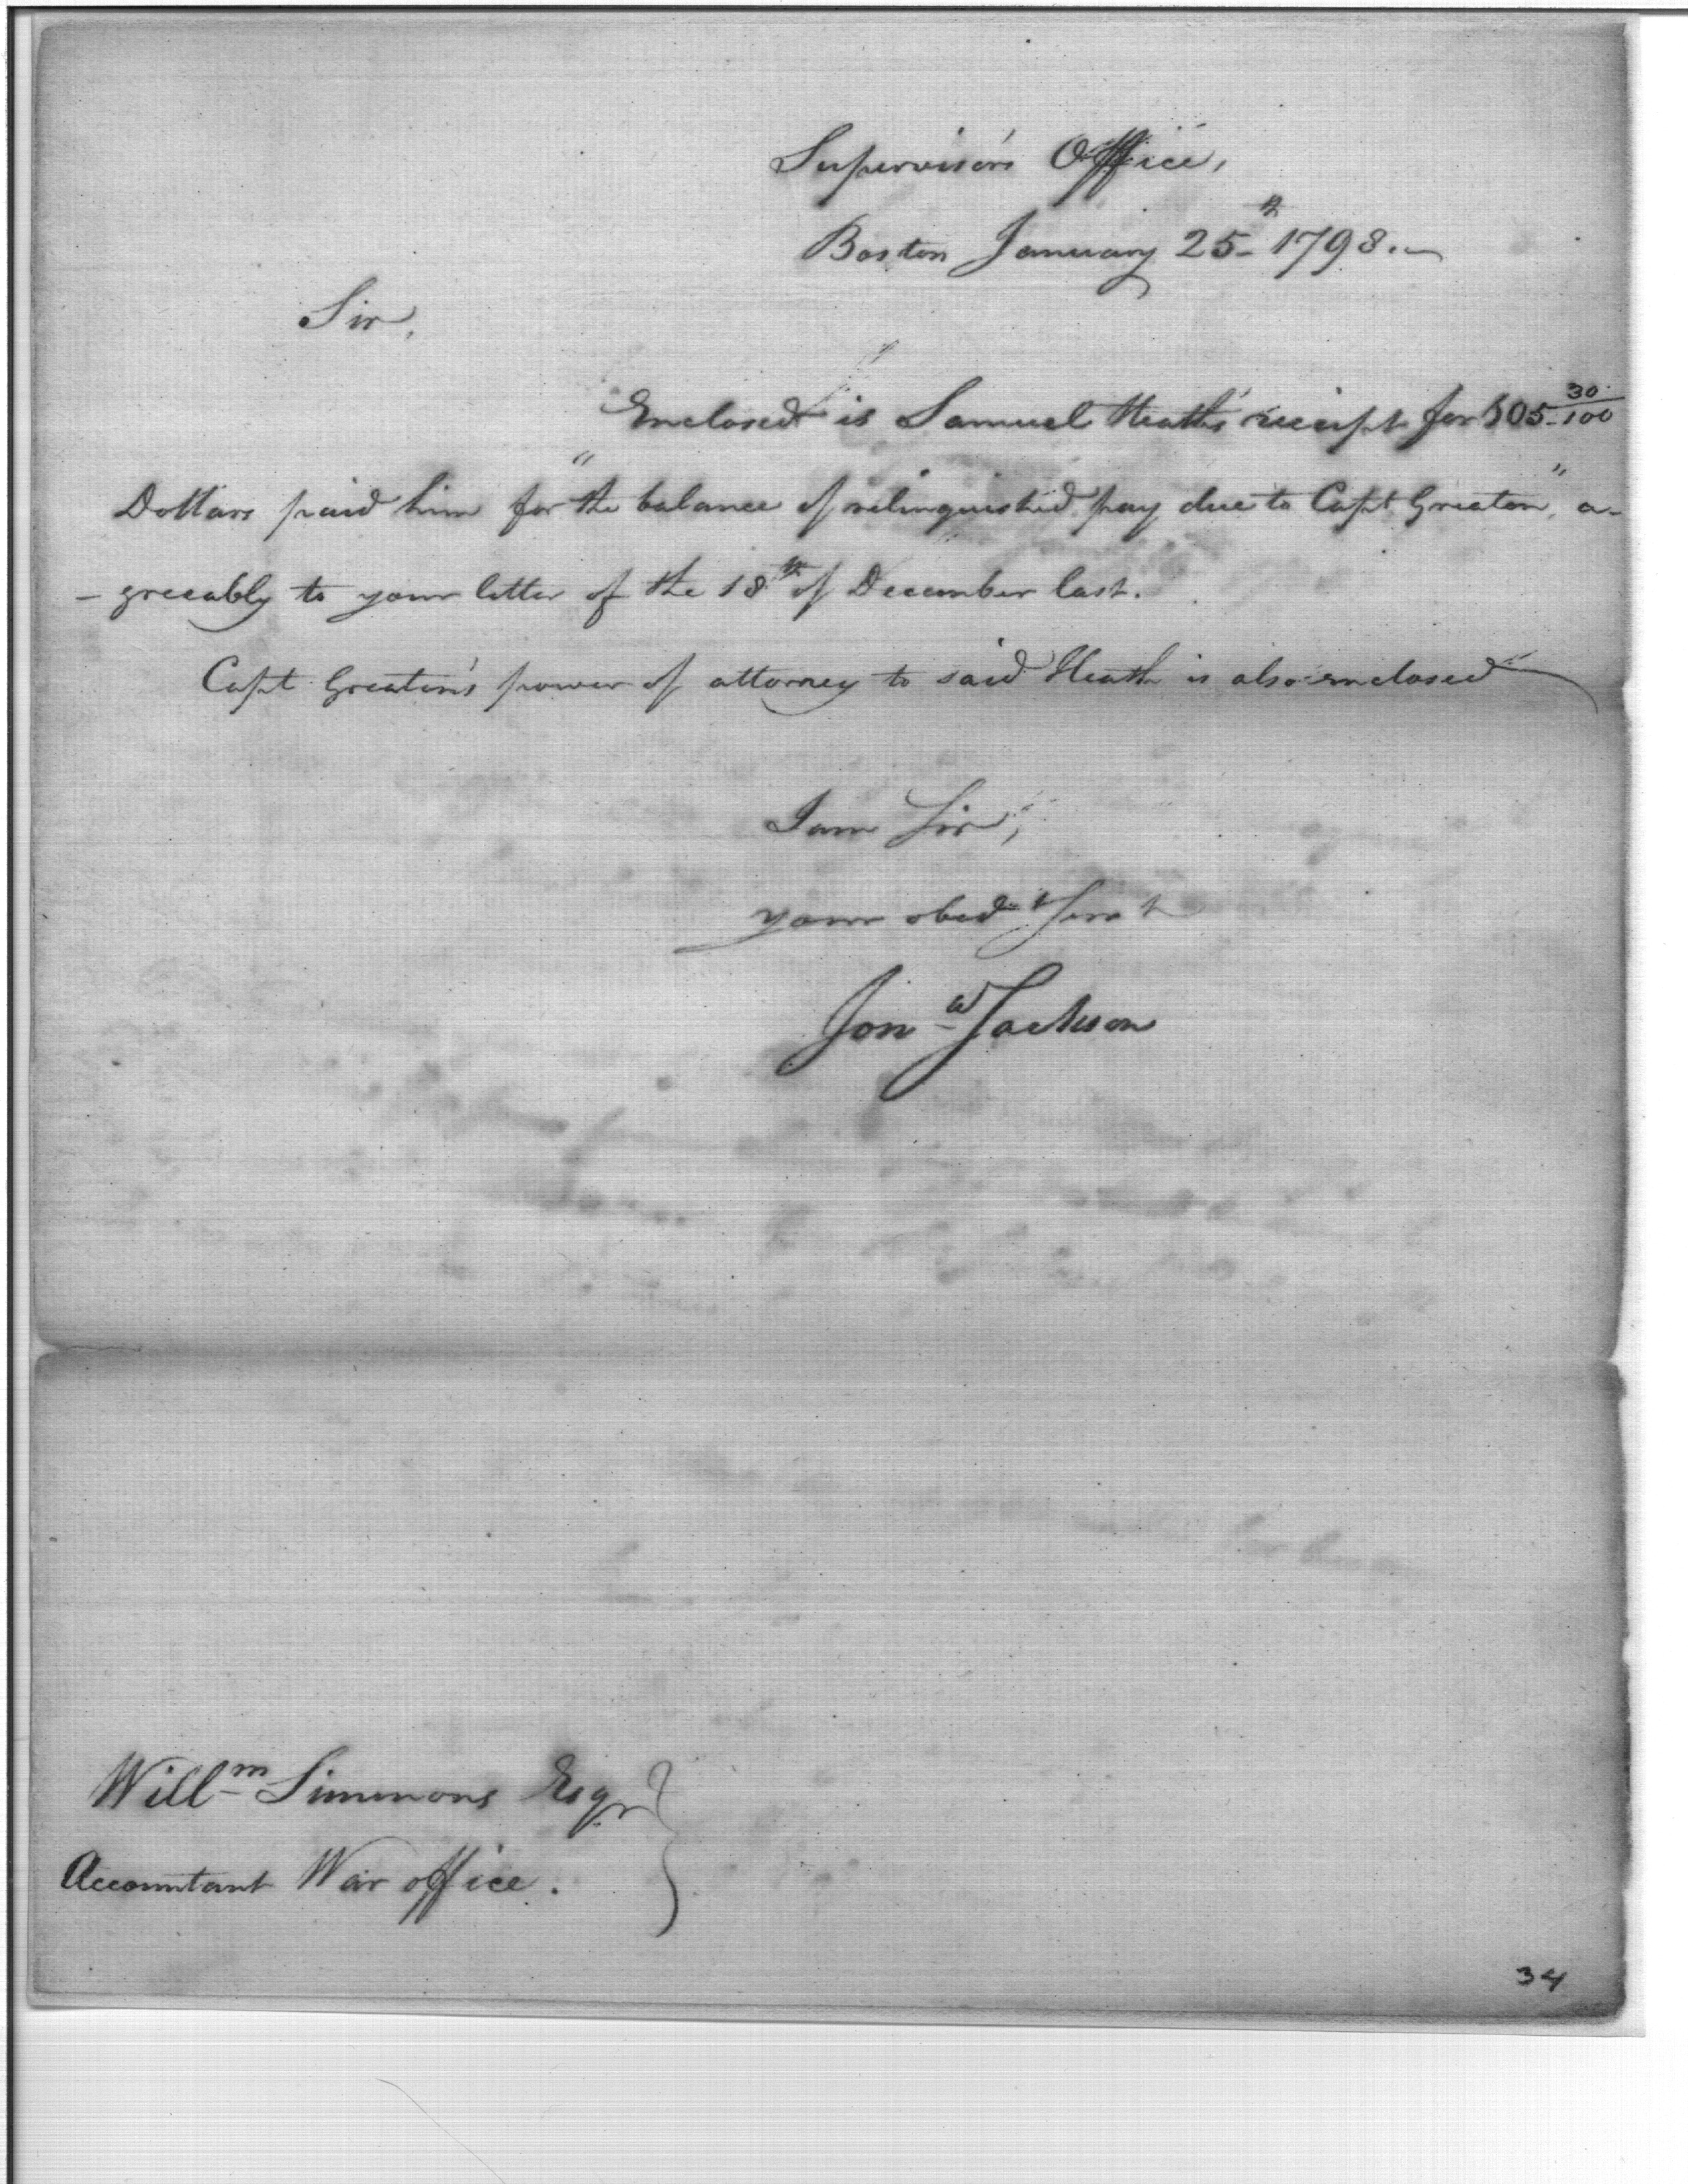 Supervisor's Office,
Boston January 25th 1798.
Sir,
Enclosed is Samuel Heath's receipt for 505 30/100
Dollars paid him for "the balance of relinquished pay due to Capt Greaton," a-
-greeably to your letter of the 18th of December last.
Capt Greaton's power of attorney to said Heath is also enclosed
I am Sir,
your obedt Servt
Jona Jackson
Willm Simmons Esqr
Accountant War office.
34